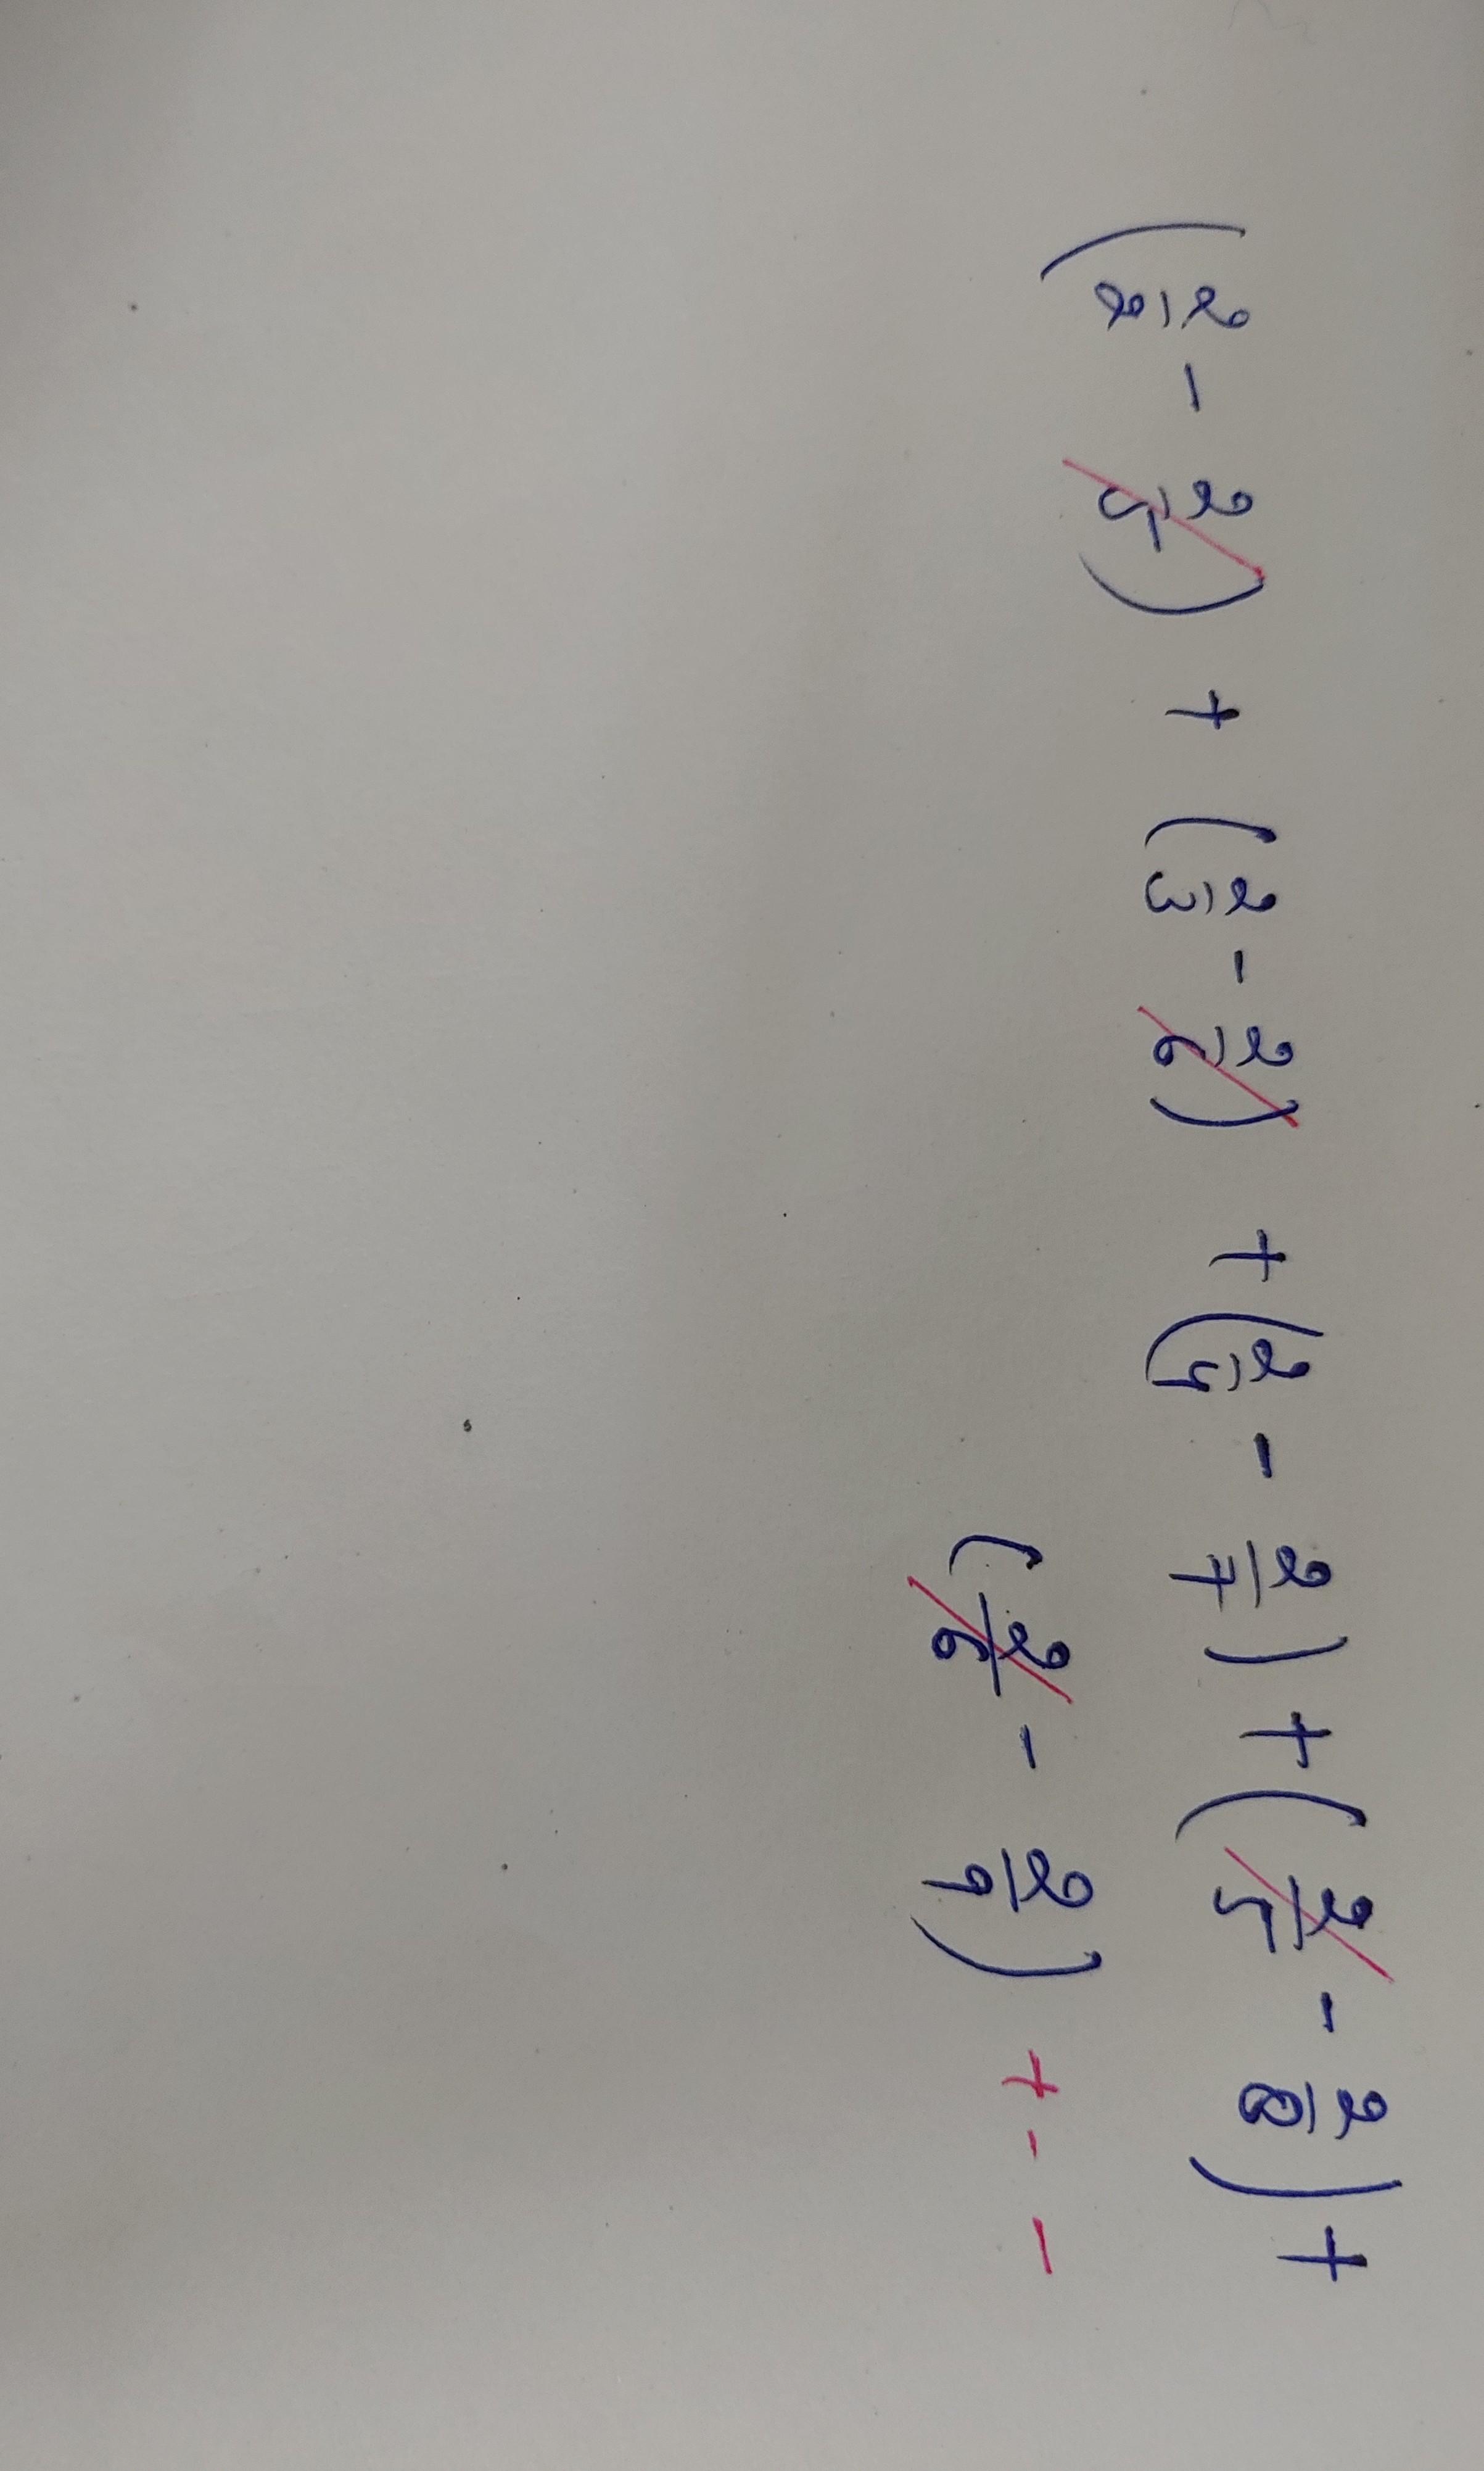 (2/2 - 2/5) + (2/3 - 2/6) + (2/4 - 2/7) + (2/5 - 2/8) +
(2/6 - 2/9) + - -